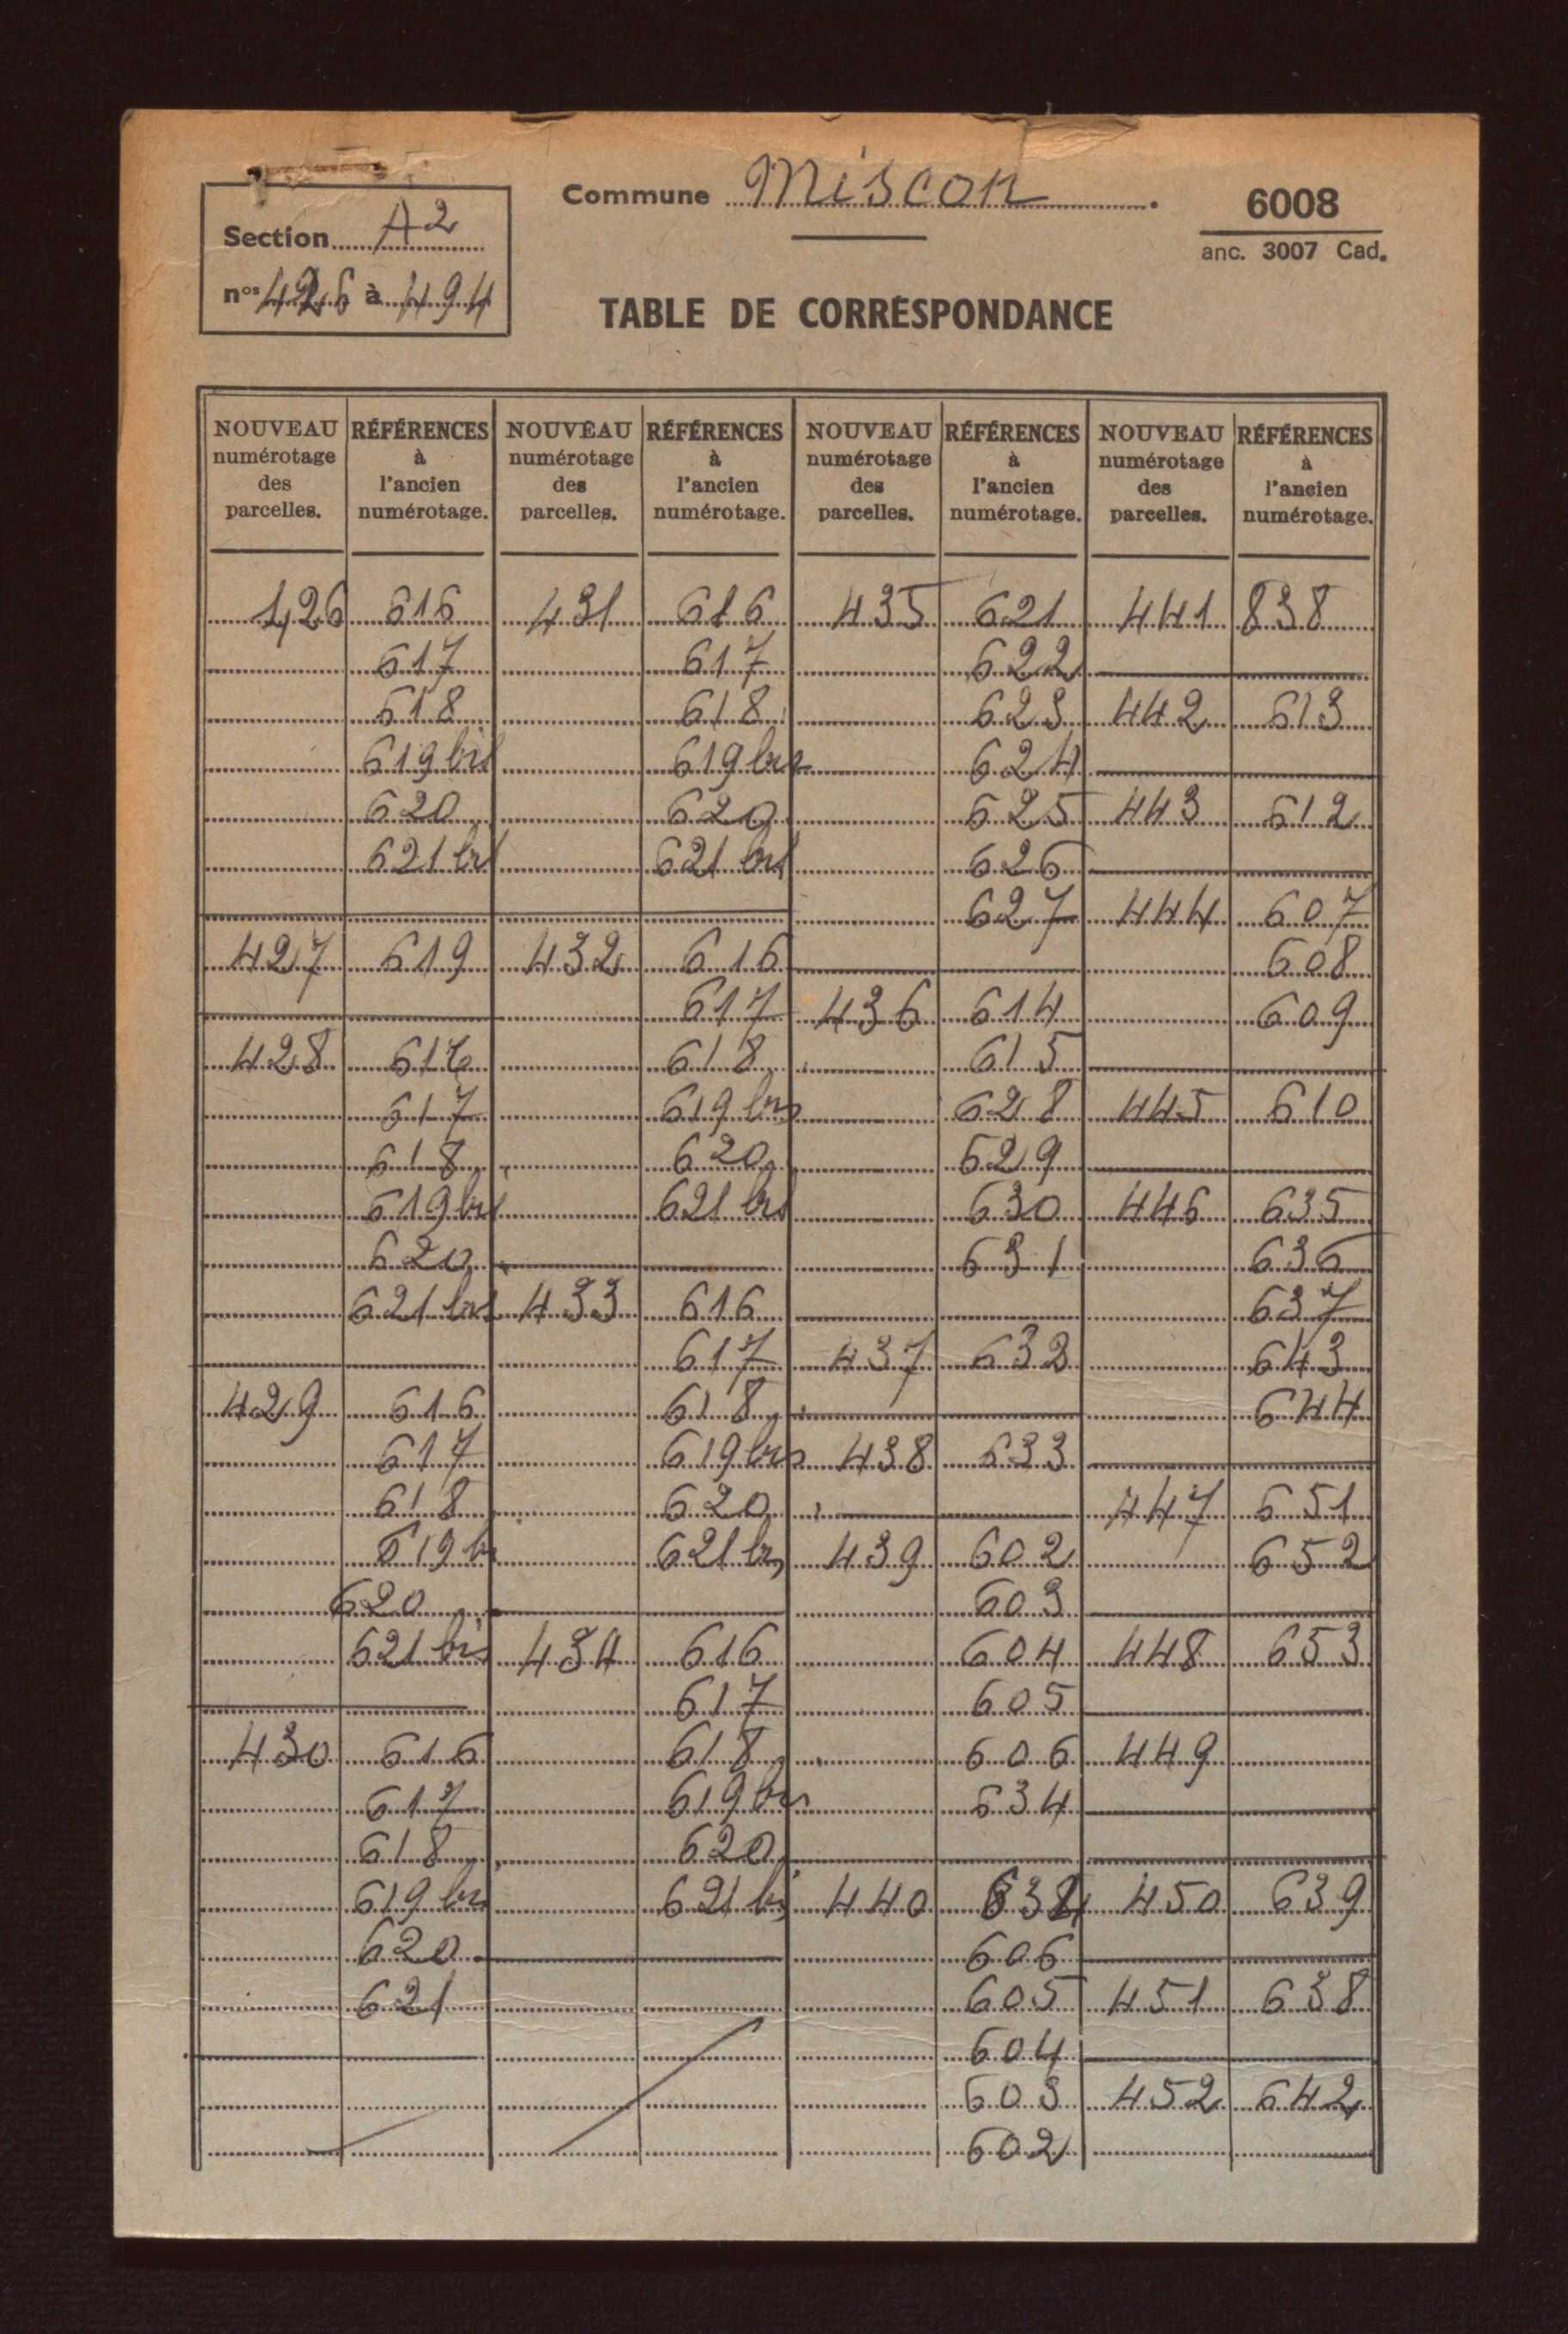 Commune Miscon.
6008
anc. 3007 Cad.
Section A2
nos 426 à 494
TABLE DE CORRESPONDANCE
NOUVEAU RÉFÉRENCES NOUVEAU RÉFÉRENCES NOUVEAU RÉFÉRENCES NOUVEAU RÉFÉRENCES
numérotage à numérotage à numérotage à numérotage à
des l'ancien des l'ancien des l'ancien des l'ancien
parcelles. numérotage. parcelles. numérotage. parcelles. numérotage. parcelles. numérotage.
426 616 431 616 435 621 441 838
617 617 622
618 618 623 442 613
619 bis 619 bis 624
620 620 625 443 612
621 bis 621 bis 626
627 444 607
427 619 432 616 608
617 436 614 609
428 616 618 615
617 619 bis 628 445 610
618 620 629
619 bis 621 bis 630 446 635
620 631 636
621 bis 433 616 637
617 437 632 643
429 616 618 644
617 619 bis 438 633
618 620 447 651
619 b 621 bis 439 602 652
620 603
621 bis 434 616 604 448 653
617 605
430 616 618 606 449
617 619 bis 634
618 620
619 bis 621 bis 440 450 639
620 606
621 605 451 638
604
603 452 642
602